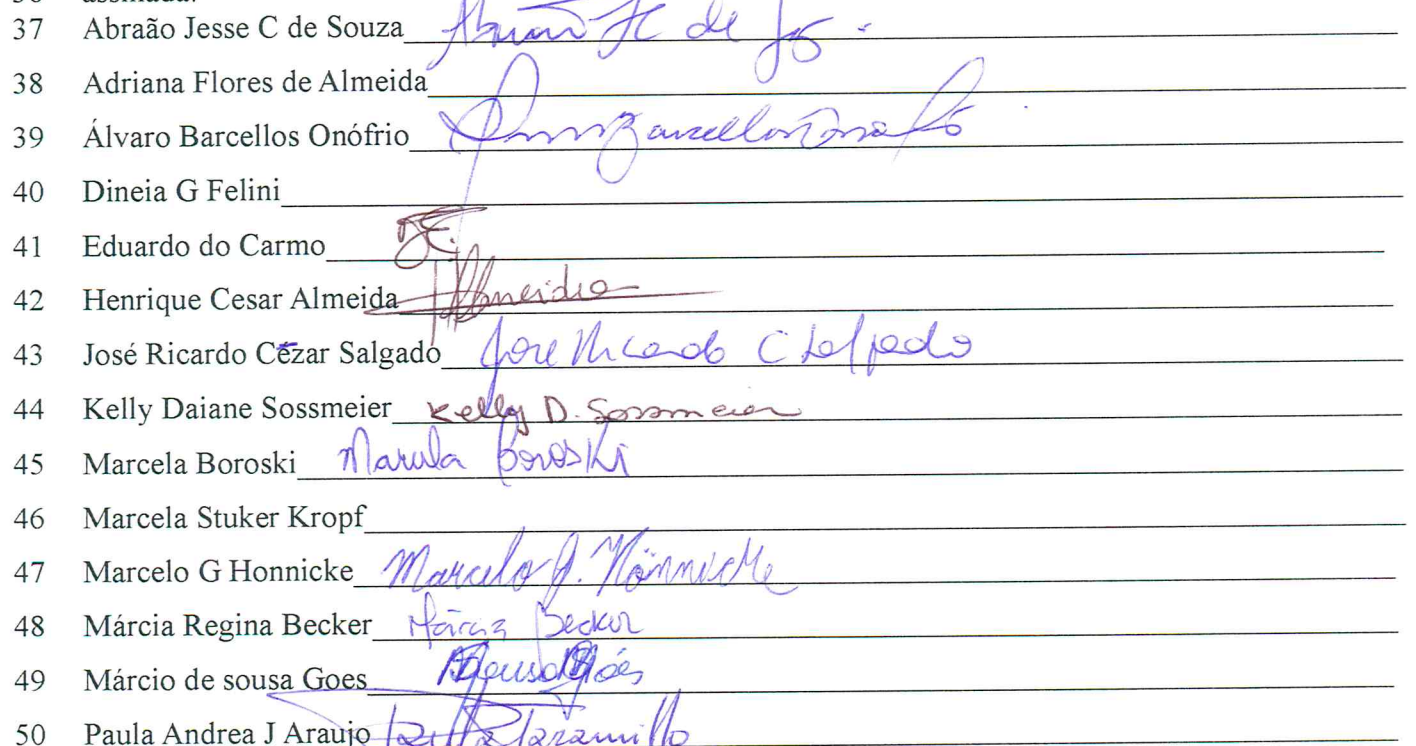 36 assinada.
37 Abraão Jesse C de Souza
38 Adriana Flores de Almeida
39 Álvaro Barcellos Onófrio
40 Dineia G Felini
41 Eduardo do Carmo
42 Henrique Cesar Almeida Almeida
43 José Ricardo Cézar Salgado José Ricardo C Salgado
44 Kelly Daiane Sossmeier Kelly D. Sossmeier
45 Marcela Boroski Marcela Boroski
46 Marcela Stuker Kropf
47 Marcelo G Honnicke Marcelo G. Hönnicke
48 Márcia Regina Becker Márcia Becker
49 Márcio de sousa Goes
50 Paula Andrea J Araujo Jaramillo